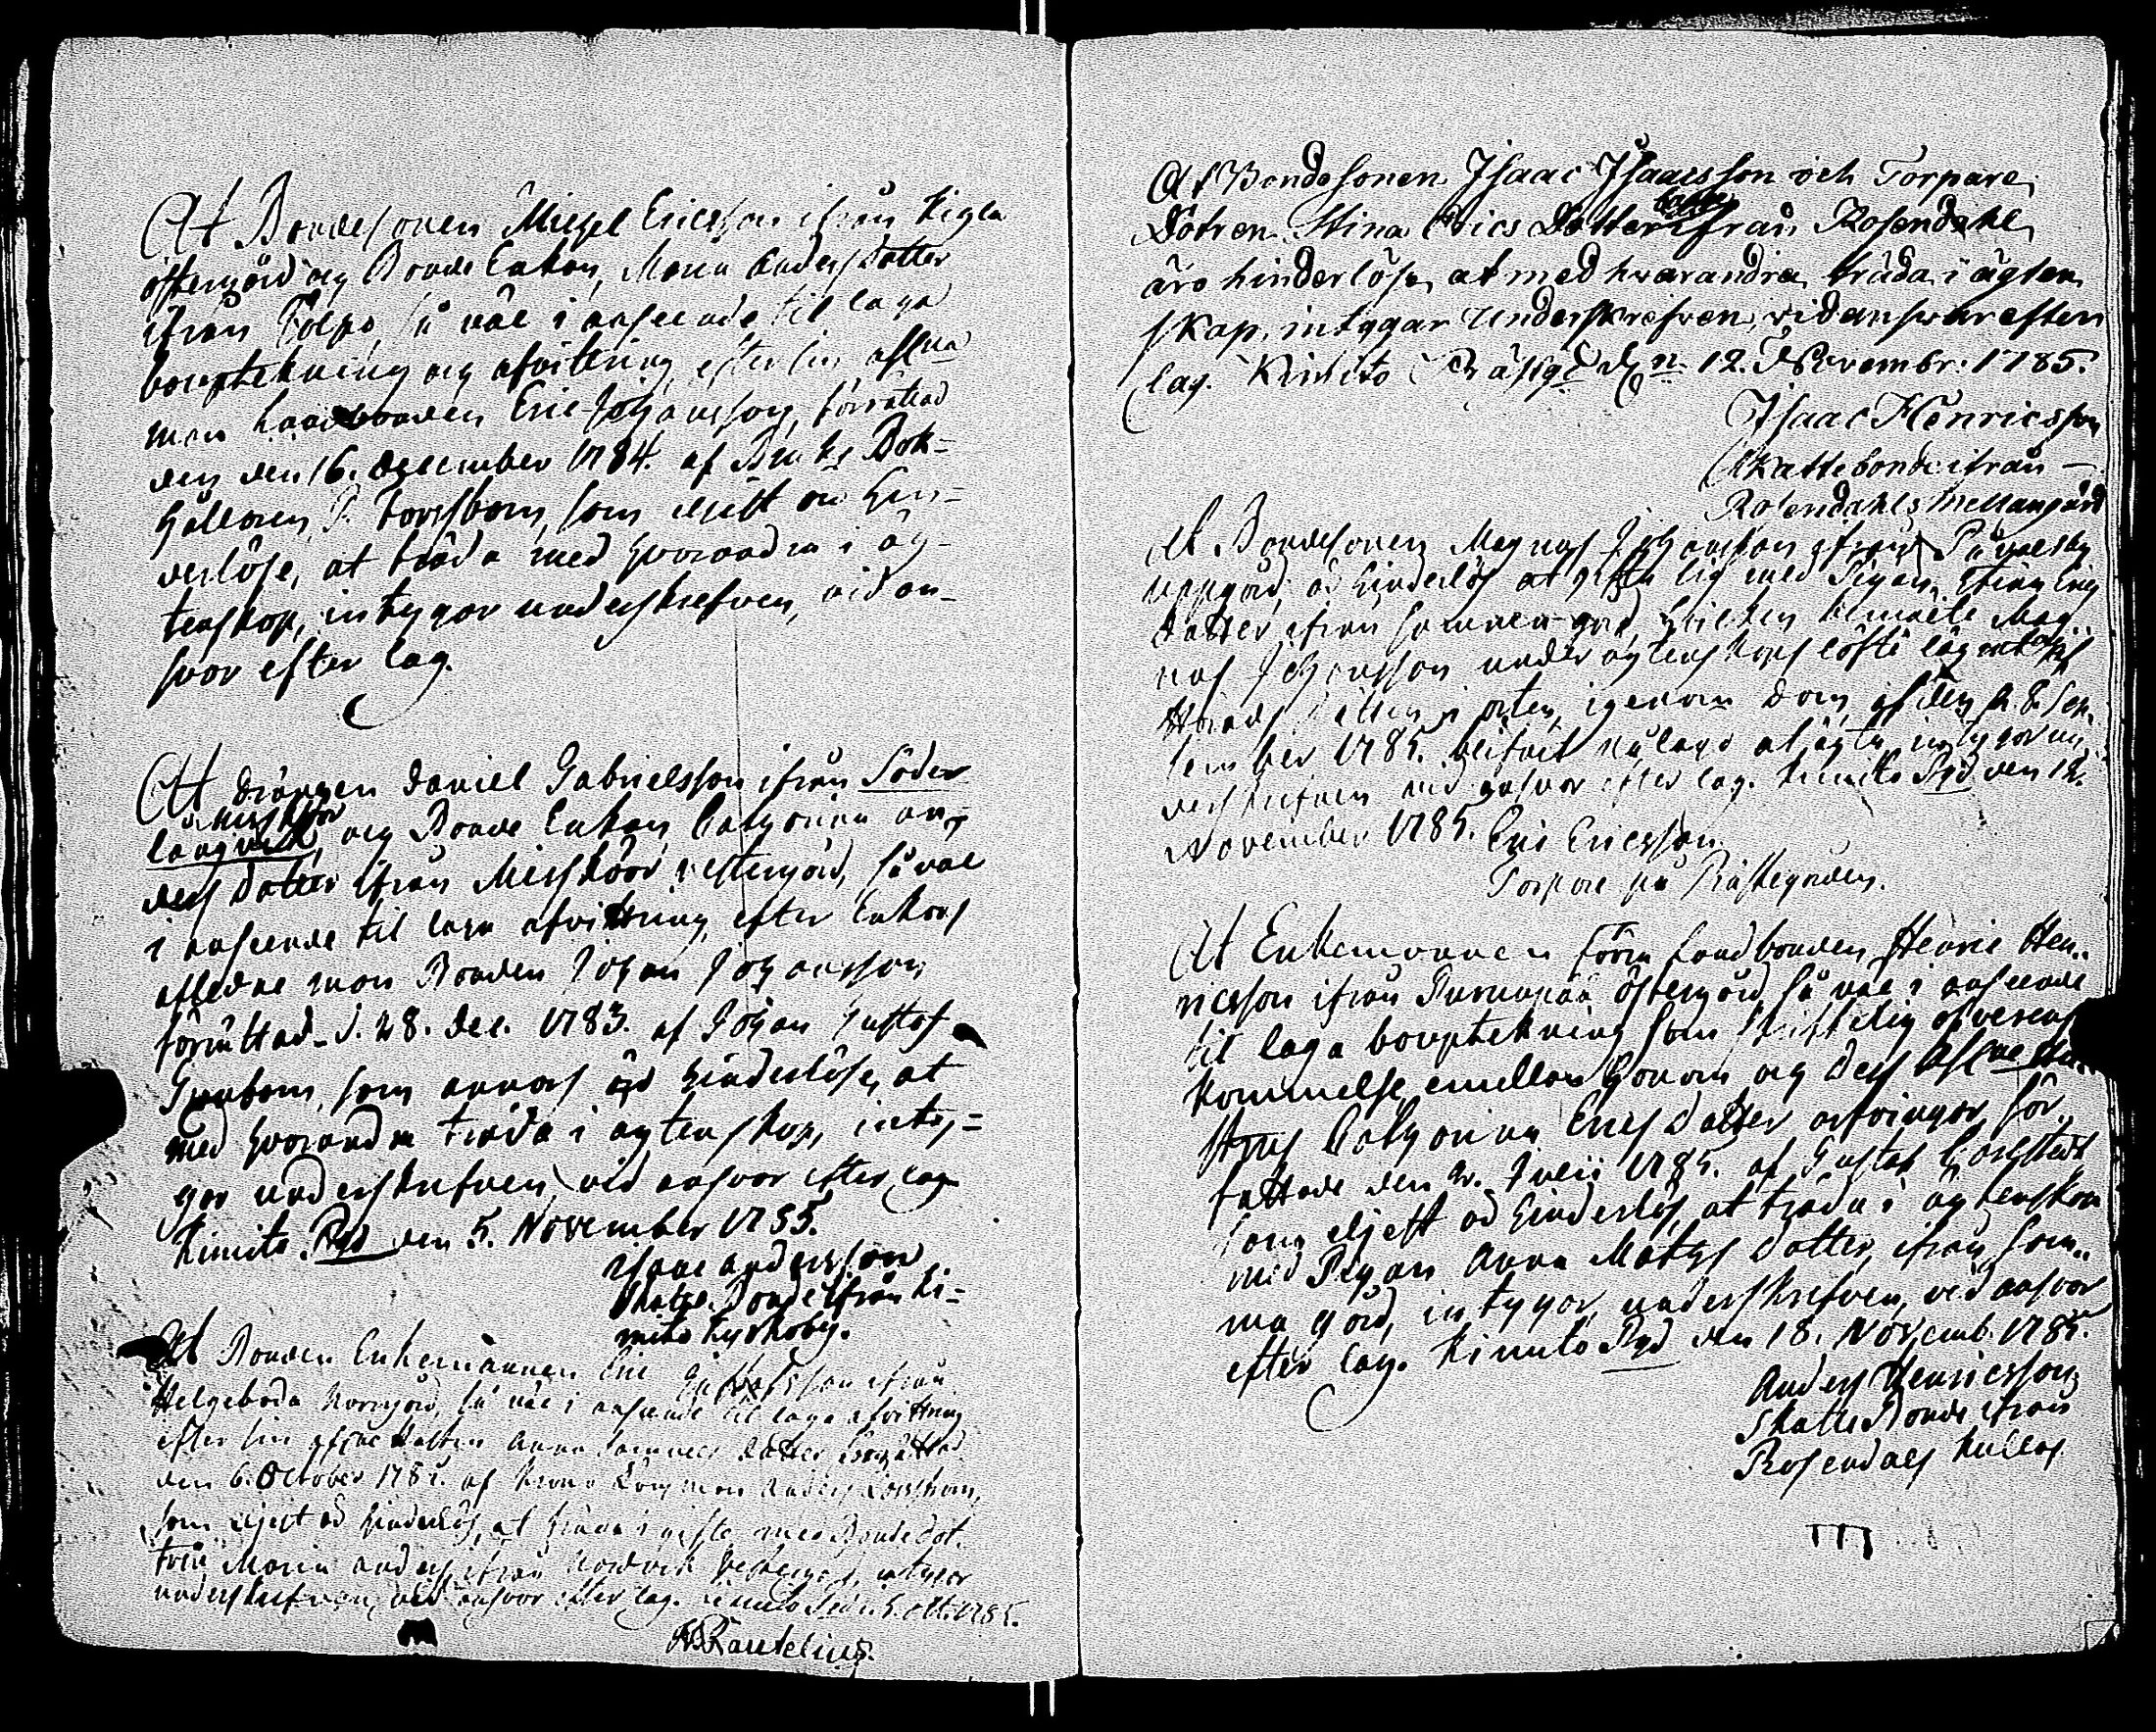 At Bondesonen Michel Ericsson ifrån Tigla
östergård och Bonde Enkan, Maria Anders dotter
ifrån Tolfvo, så väl i anseende til laga
bouptekning och afvittring, efter sin aflna
man Landbonden Eric Johansson, förrättad
den den 16. December 1784. af Bruks Bok=
hållaren P. Forssbom, som eljest äro hin=
derlöse, at träda med hvarandra i äg-
tenskap, intygar underskrefven, vid an-
svar efter lag.
At drängen Daniel Gabrielsson ifrån Söder
långvik, och Bonde Enkan Catharina An-
ders dotter ifrån Misskärr vestergård, så väl
i anseende til laga afvittring efter Enkans
afledne man Bonden Johan Johansson
förrättad d. 28. Dec. 1783. af Johan Gustaf
Granbom, som annars äro hinderlöse, at
med hvarandra träda i ägtenskap, inty=
gar underskrefven, vid ansvar efter lag
Kimito Pgd den 5. November 1785.
Isaac Andersson
Skatte Bonde ifrån Ki=
mito Kyrkoby.
At Bonden Enkemannen Eric Gustafsson ifrån
Helgeboda Norrgård, så väl i anseende til laga afvittring
efter sin aflne Hustru Anna Samuels dotter förrättad
den 6. October 1785. af Krono Länsman Anders
som eljest är hinderlös, at träda i gifte med Bondedot-
tren Maria Anders ifrån Nordvik Vestergård, intygar
underskrefven, vid ansvar efter lag. Kimito Pgd d. 5. 1785.
Rautelius.
At Bondesonen Isaac Isaacsson och Torpare
Dotren Stina Erics Dotter både ifrån Rosendahl
äro hinderlöse, at med hvarandra träda i ägten
skap, intygar Underskrefven, vid answar efter
lag. Kimito Prästgd d. 12. November 1785.
Isaac Henricsson
Skattebonde ifrån —
Rosendahls mellangård
At Bondesonen Magnus Johansson ifrån Påvalsby
uppgård, är hinderlös at gifta sig med Pigan Stina Erics
dotter ifrån samma gård, hvilken bemälte Mag-
nus Johansson under ägtenskaps löfte lägrat och af
Härads Rätten i orten, igenom dom af den 28. Sep-
tember 1785. blifvit ålagd at ägta, intygar un-
derskrefven vid ansvar efter lag. Kimito Pgd den 12.
November 1785. Eric Ericsson
Torpare på Prästegården.
At Enkemannen förra Landbonden Henric Hen-
ricsson ifrån Purunpää Östergård, så väl i anseende
til laga bouptekning som skriftelig öfverens
kommelse emellan honom och dess Aflne Hu-
strus Catharina Erics dotter arfvingar för-
fattade den 2. Junii 1785. af Gustaf
som eljest är hinderlös, at träda i ägtenskap
med Pigan Anna Mats dotter, ifrån sam-
ma gård, intygar, underskrefven, vid ansvar
efter lag. Kimito Pgd den 18. Novemb. 1785.
Anders Henricsson
Skatte Bonde ifrån
Rosendals Kullas.